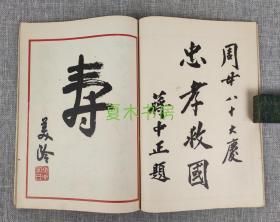 周母八十大慶
忠孝救國
蔣中正題
寿
美齡
夏木书房